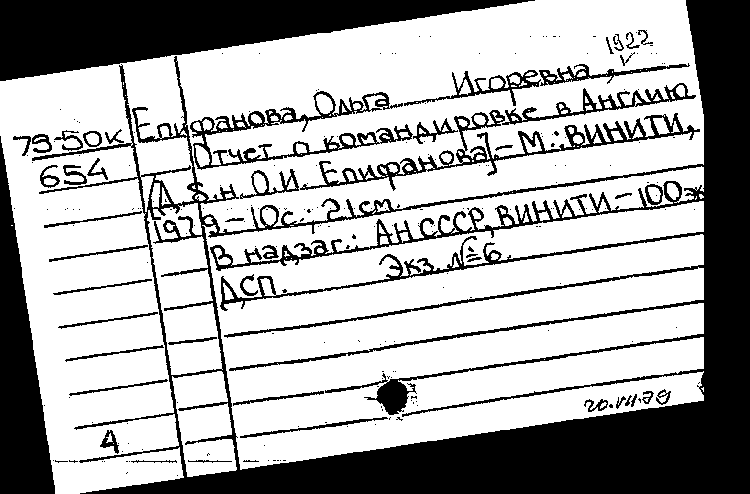 1922
79-50к Епифанова, Ольга Игоревна,
654 Отчет о командировке в Англию
[Д.б.н. О.И. Епифанова].- М.: ВИНИТИ,
1979.- 10с.; 21см.
В надзаг.: АН СССР, ВИНИТИ.- 100эк
ДСП. Экз. №6.
4
20.VII.79